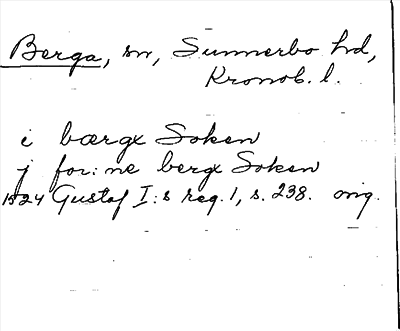 Berga, sn, Sunnerbo hd,
Kronob. l.
i bærgx Soken
j for:ne bergx Soken
1524 Gustaf I:s reg. 1, s. 238. orig.